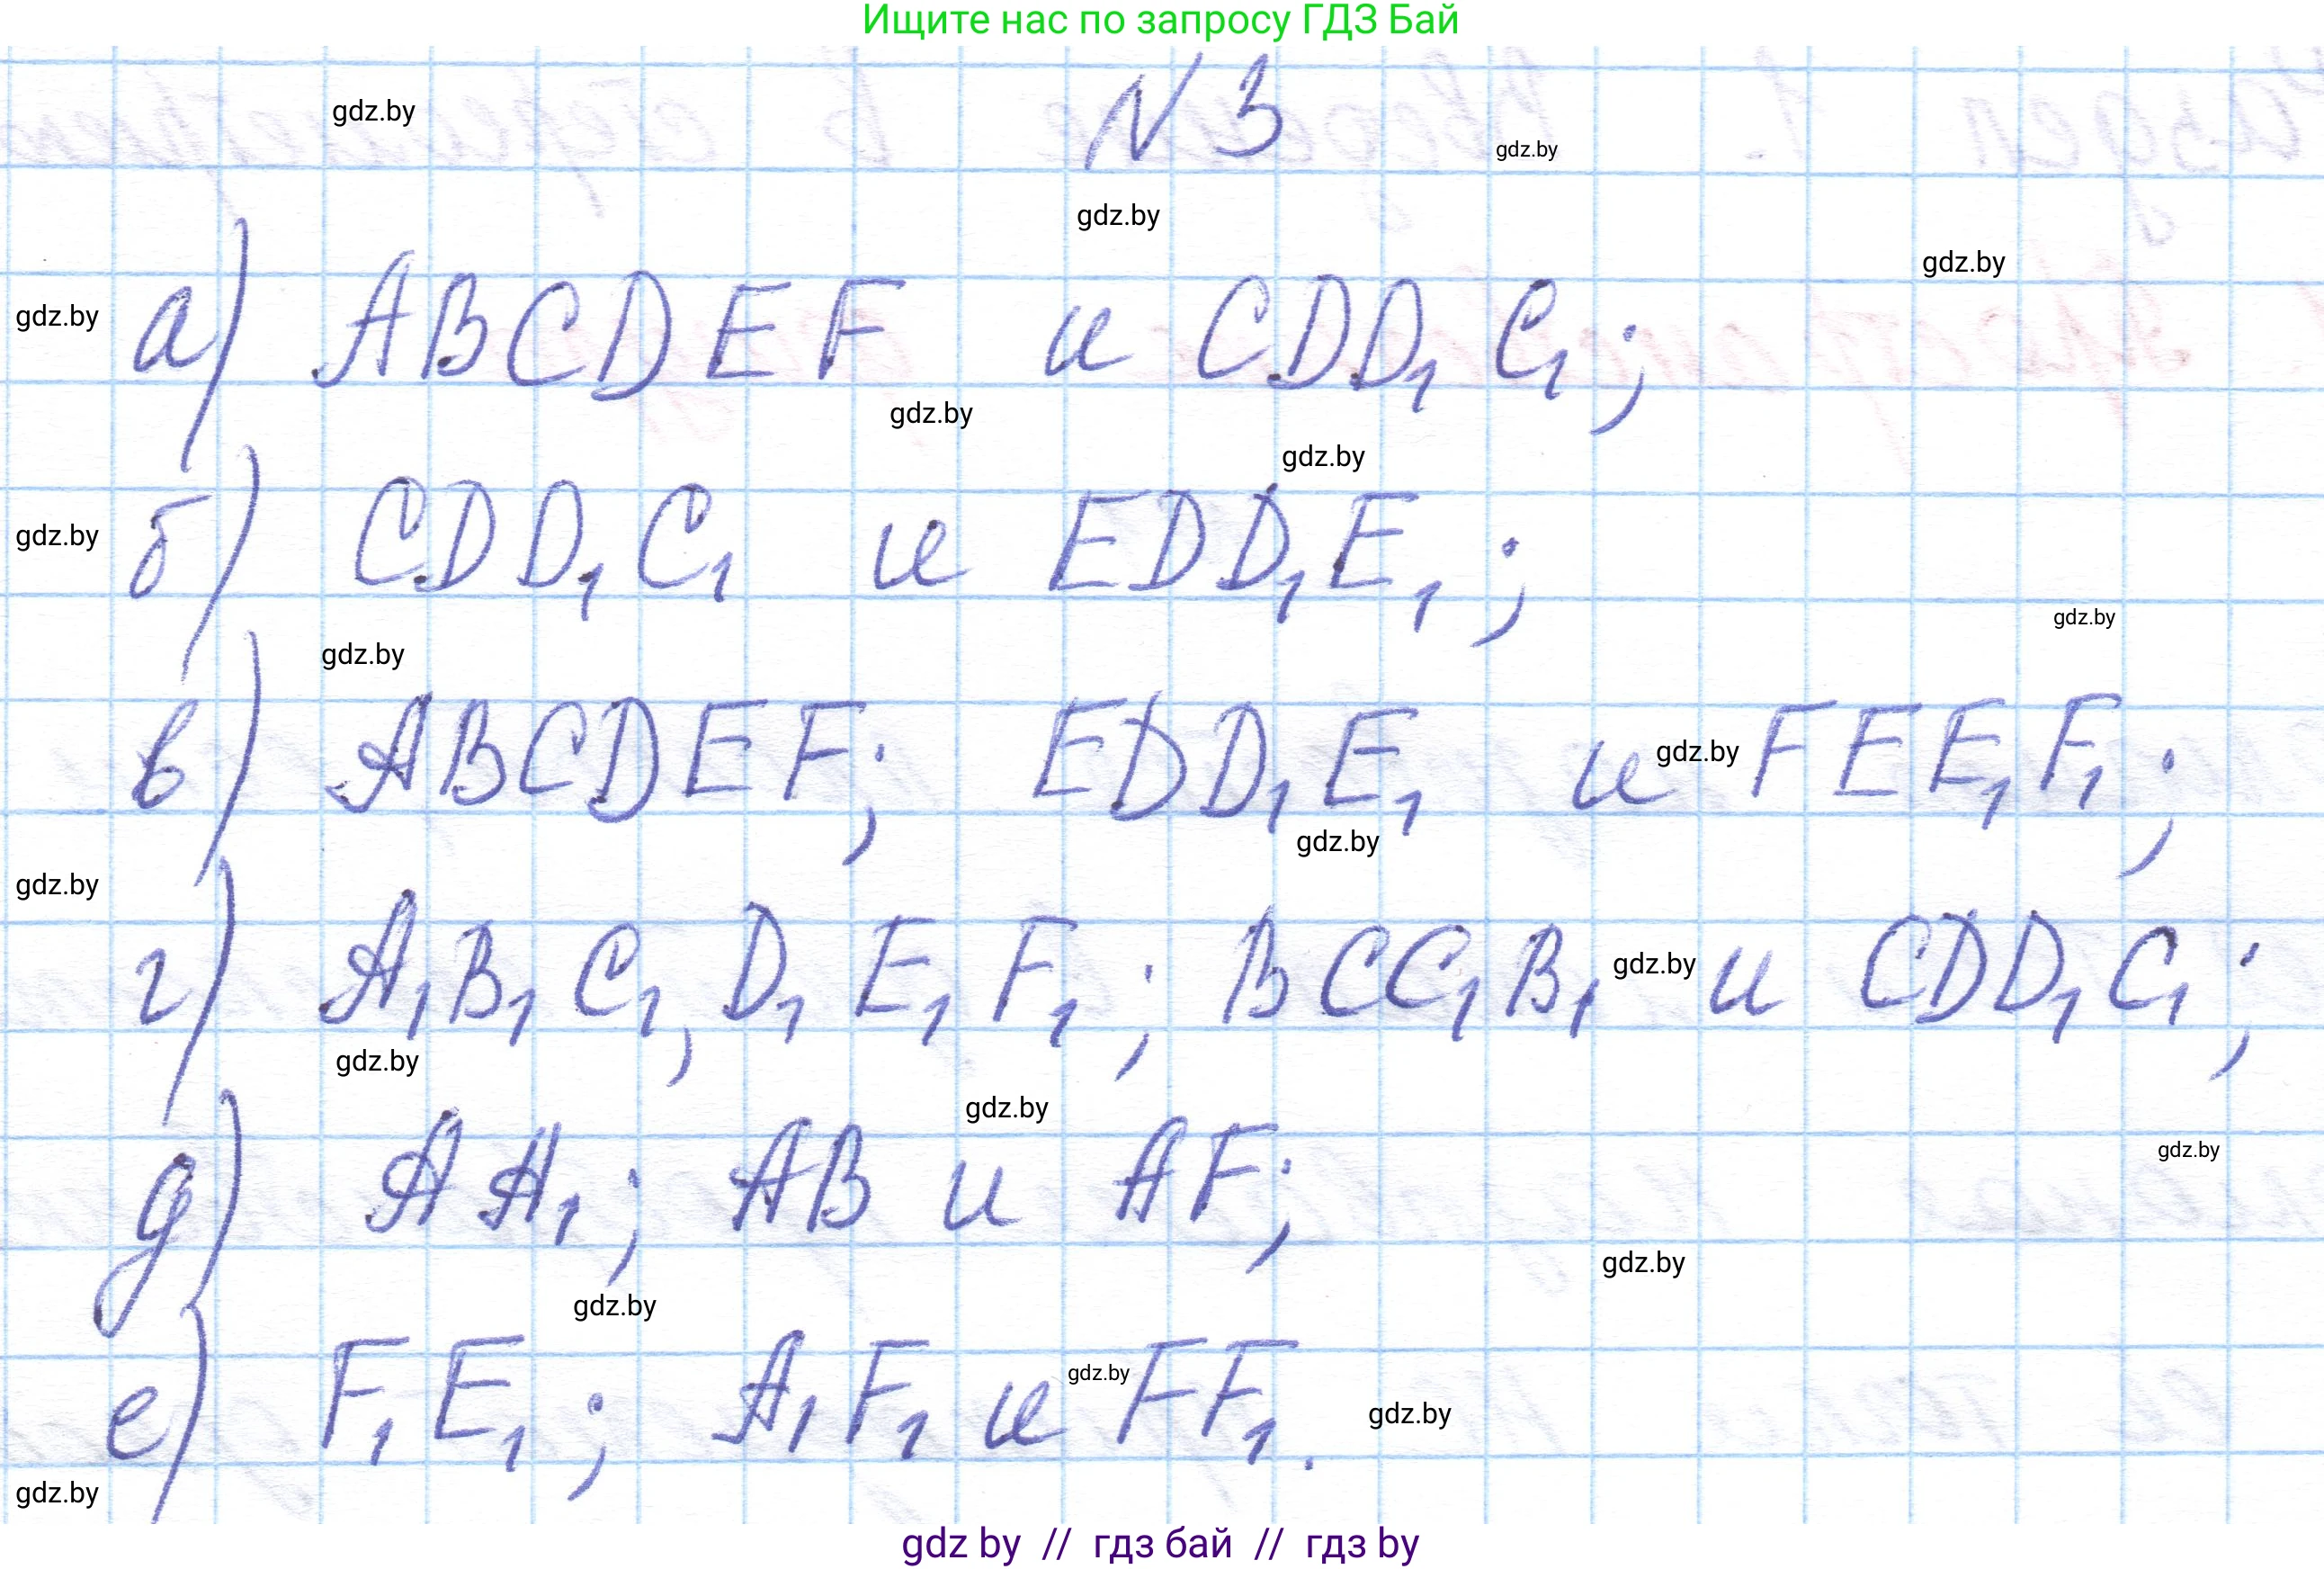 Ищите нас по запросу ГДЗ Бай
N 3
gdz.by
gdz.by
gdz.by
gdz.by
а) ABCDEF и CDD₁C₁;
gdz.by
gdz.by
gdz.by
б) CDD₁C₁ и EDD₁E₁;
gdz.by
gdz.by
gdz.by
в) ABCDEF; EDD₁E₁ и FEE₁F₁;
gdz.by
gdz.by
gdz.by
г) A₁B₁C₁,D₁E₁F₁; BCC₁B₁ и CDD₁C₁;
gdz.by
gdz.by
gdz.by
д) AA₁; AB и AF;
gdz.by
gdz.by
gdz.by
е) F₁E₁; A₁F₁ и FF₁.
gdz.by
gdz.by
gdz.by
gdz by // гдз бай // гдз by